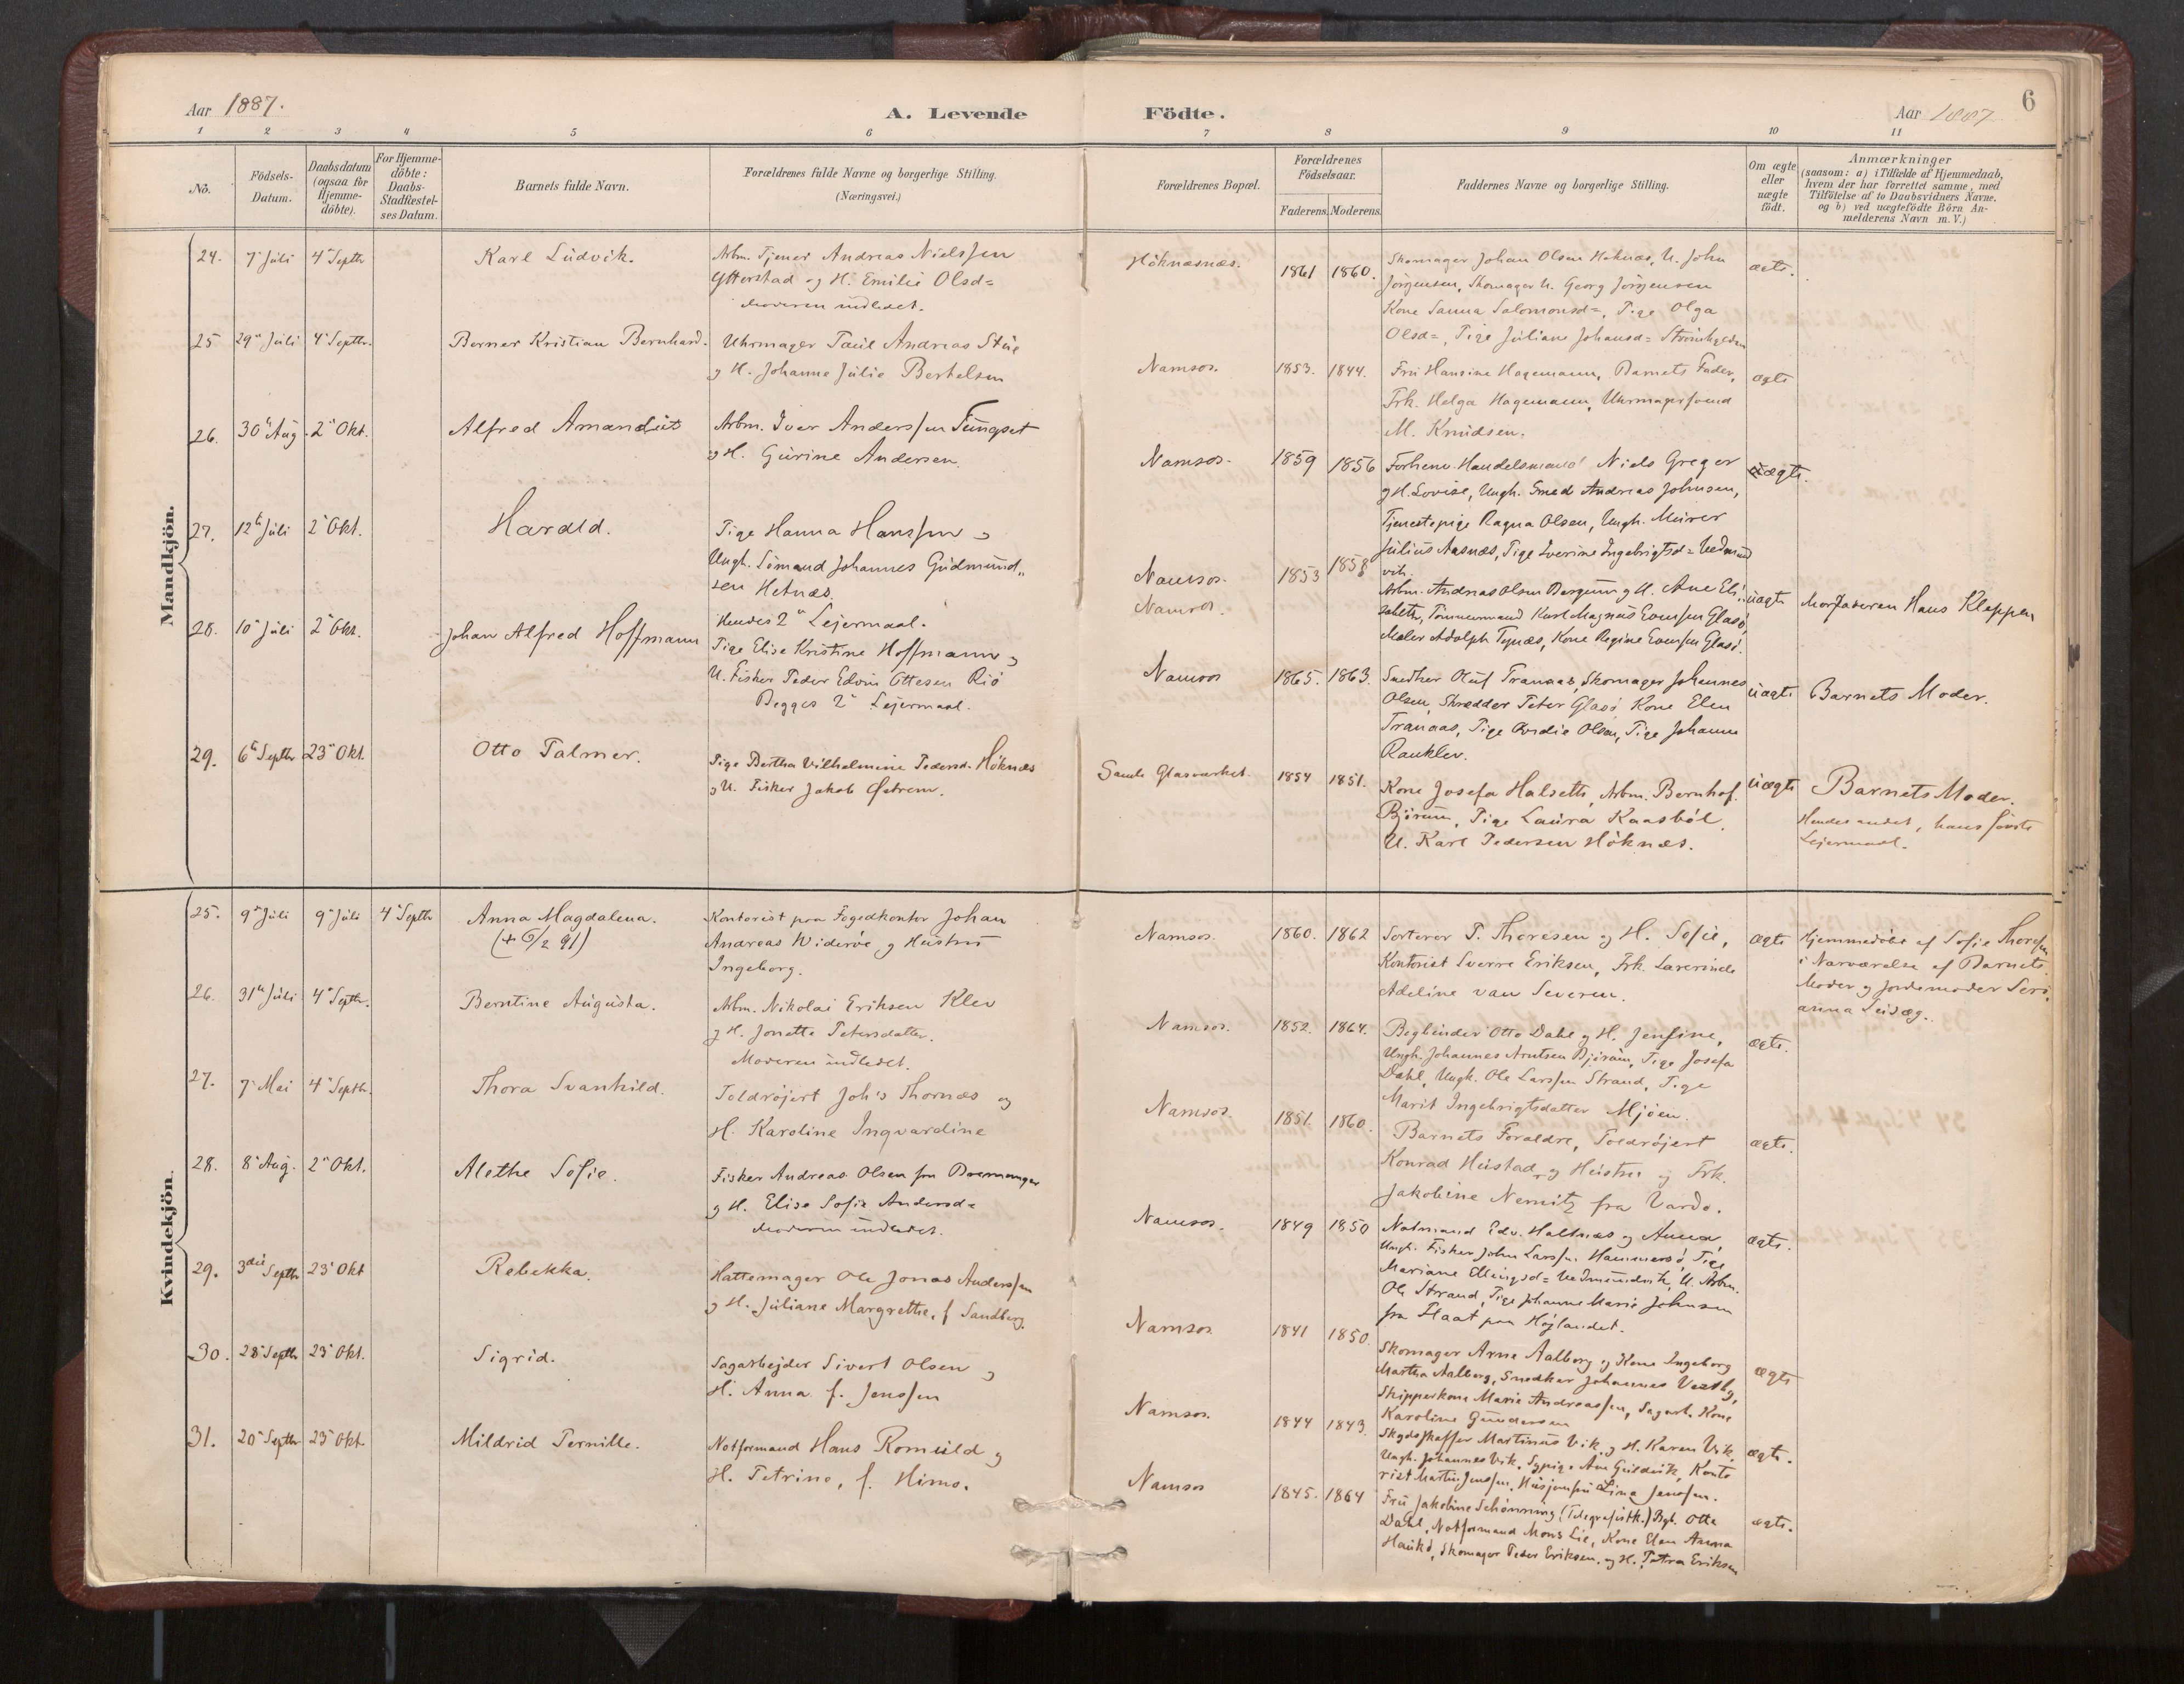 Aar 1887.
A. Levende Födte.
Aar 1887
6
1 2 3 4 5 6 7 8 9 10 11
No.
Födsels-Datum.
Daabsdatum (ogsaa for Hjemme-döbte).
For Hjemme-döbte: Daabs-Stadfæstel-ses Datum.
Barnets fulde Navn.
Forældrenes fulde Navne og borgerlige Stilling.
(Næringsvei.)
Forældrenes Bopæl.
Forældrenes Födselsaar.
Faderens. Moderens.
Faddernes Navne og borgerlige Stilling.
Om ægte eller uægte födt.
Anmærkninger
(saasom: a) i Tilfælde af Hjemmedaab, hvem der har forrettet samme, med Tilföielse af to Daabsvidners Navne, og b) ved uægtefödte Börn An-melderens Navn m. V.)
Mandkjön.
24. 7 Juli 4 Septbr Karl Ludvik.
Arbm. Tjener Andreas Nielssen
Ytterstad og H. Emilie Olsd=
Moderen indledet.
Höknæsnæs. 1861 1860.
Skomager Johan Olsen Höknæs, U. John
Jörgensen, Skomager U. Georg Jörgensen
Kone Sanna Salomonsd=, Pige Olga
Olsd=, Pige Juliane Johansd=
ægte.
25 29 Juli 4 Septbr. Berner Kristian Bernhard.
Uhrmager Paul Andreas Stue
og H. Johanne Julie Berthelsen
Namsos. 1853. 1844.
Fru Hansine Hagemann, Barnets Fader,
Frk. Helga Hagemann, Uhrmagersvend
M. Knudsen.
ægte
26. 30 Aug. 2 Okt. Alfred Amandus
Arbm. Iver Anderssen Fungset
og H. Gurine Andersen.
Namsos. 1859 1856
Forhenv. Handelsmand Niels Greger
og H. Lovise, Ungk. Smed Andreas Johnsen,
Tjenestepige Ragna Olsen, Ungk. Murer
Julius Aasnæs, Pige Iverine Ingebrigtsd= Vedmund
vik.
ægte.
27. 12 Juli 2 Okt. Harald.
Pige Hanna Hanssen og
Ungk. Sömand Johannes Gudmund„
sen Hetnæs.
Hendes 2 Lejermaal.
Namsos. 1853 1858
Namsos.
Arbm. Andreas Olsen Bergum og H. Ane Eli„
sabeth, Tömmermand Karl Magnus Evensen Glasö,
Maler Adolph Tynæs, Kone Regine Evensen Glasö.
uægte Morfaderen Hans Kleppen
28. 10 Juli 2 Okt. Johan Alfred Hoffmann
Pige Elise Kristine Hoffmann og
U. Fisker Peder Edvin Ottesen Risö
Begges 2 Lejermaal.
Namsos 1865. 1863.
Snedker Oluf Tranaas, Skomager Johannes
Olsen, Skrædder Peter Glasö, Kone Elen
Tranaas, Pige Olsen, Pige Johanna
Ranklev.
uægte Barnets Moder.
29. 6 Septbr 23 Okt. Otto Palmer.
Pige Bertha Vilhelmine Pedersd. Höknæs
og U. Fisker Jakob Østrem.
Glasværket. 1854 1851.
Kone Josefa Halseth, Arbm. Bernhof.
Björum, Pige Laura Kaasböl,
U. Karl Pedersen Höknæs.
uægte Barnets Moder.
Hendes andet, hans første
Lejermaal.
Kvindekjön.
25. 9 Juli 9 Juli 4 Septbr Anna Magdalena.
(+ 6/2 91)
Kontorist paa Fogedkontor Johan
Andreas Wideröe og Hustru
Ingeborg.
Namsos. 1860. 1862
Sorterer P. Thoresen og H. Sofie,
Kontorist Sverre Eriksen, Frk. Lærerinde
Adeline van Severen.
ægte Hjemmedöbt af Sofie Thoresen
i Nærværelse af Barnets
Moder og Jordemoder Seri„
anna
26. 31 Juli 4 Septbr. Berntine Augusta.
Arbm. Nikolai Eriksen Klev
og H. Jonetta Petersdatter.
Moderen indledet.
Namsos. 1852. 1864.
Bogbinder Otto Dahl og H. Jensine,
Ungk. Johannes Arntsen Björum, Pige Josefa
Dahl, Ungk. Ole Larssen Strand, Pige
Marit Ingebrigtsdatter Mjöen.
ægte.
27. 7 Mai 4 Septbr. Thora Svanhild.
Toldröjert Joh's Thornæs og
H. Karoline Ingvardine
Namsos. 1851. 1860.
Barnets Forældre, Toldröjert
Konrad Hustad og Hustru og Frk.
Jakobine Nemitz fra Vardö.
ægte.
28. 8 Aug. 2 Okt. Alethe Sofie.
Fisker Andreas Olsen fra Bremanger
og H. Elise Sofie Andersd=
Moderen indledet.
Namsos. 1849 1850
Notmand Edv. Haltnæs og Anna,
Ungk. Fisker John Larssen Hammersö, Pige
Mariane Ellingsd= Vedmundvik, U. Arbm.
Ole Strand, Pige Johanne Marie Johnsen
fra Flaat paa Höjlandet.
ægte.
29. 3die Septbr 23 Okt Rebekka.
Hattemager Ole Jonas Anderssen
og H. Juliane Margrethe, f. Sandberg.
Namsos. 1841 1850.
Skomager Arne Aalberg og Kone Ingeborg
Martha Aalberg, Snedker Johannes Vestby,
Skipperkone Marie Andreassen, Sagarb. Kone
Karoline Gundersen
ægte
30. 28 Septbr 23 Okt. Sigrid.
Sagarbejder Sivert Olsen og
H. Anna f. Jenssen
Namsos. 1844 1843.
Skydsskaffer Martinus Vik og H. Karen Vik,
Ungk. Johannes Vik, Sypige Ane Guldvik, Konto
rist Martin Jenssen, Husjomfru Lina Jenssen.
ægte.
31. 20 Septbr 23 Okt. Mildrid Pernille.
Notformand Hans Romuld og
H. Petrine, f. Himo.
Namsos 1845. 1864
Fru Jakobine Schönning (Telegrafistk.) Bgb. Otto
Dahl, Notformand Mons Lie, Kone Elen Anna
Haukö, Skomager Peder Eriksen og H. Petra Eriksen
ægte.